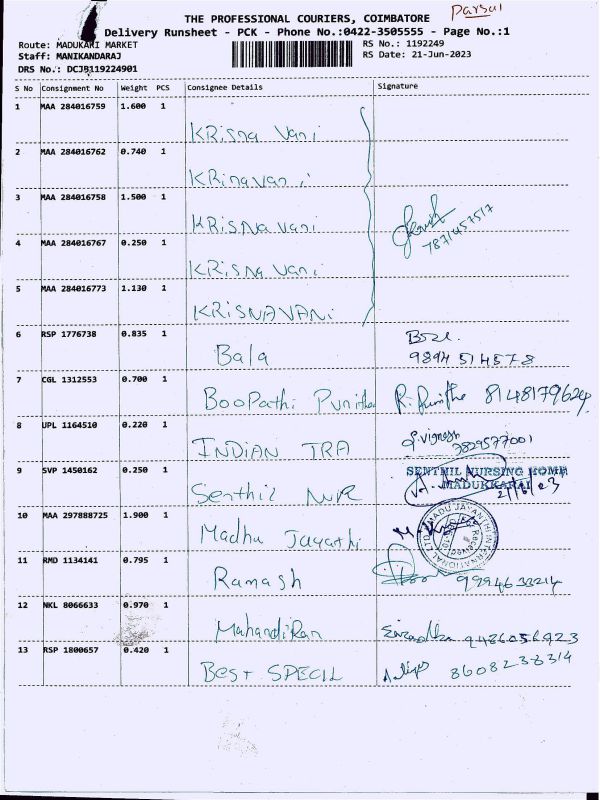 THE PROFESSIONAL COURIERS, COIMBATORE
Parsal
Delivery Runsheet - PCK - Phone No.:0422-3505555 - Page No.:1
Route: MADUKARI MARKET
RS No.: 1192249
Staff: MANIKANDARAJ
RS Date: 21-Jun-2023
DRS No.: DCJB119224901
S No Consignment No Weight PCS Consignee Details Signature
1 MAA 284016759 1.600 1
KRisna vani
2 MAA 284016762 0.740 1
KRinavani
3 MAA 284016758 1.500 1
KRiSNa vani
7871457517
4 MAA 284016767 0.250 1
KRiSna vani
5 MAA 284016773 1.130 1
KRiSNAVANi
6 RSP 1776738 0.835 1
Bala
9894 514578
7 CGL 1312553 0.700 1
BooPathi Punitha 8148179624
8 UPL 1164510 0.220 1
INDIAN TRA
S.vignesh
7829577001
9 SVP 1450162 0.250 1
SENTHIL NURSING HOME
MADUKKARAI
Senthil NUR
21/6/23
10 MAA 297888725 1.900 1
Madhu Jayathi
MADU JAYANTHI INTERNATIONAL LTD
Received
11 RMD 1134141 0.795 1
Ramash 9994633214
12 NKL 8066633 0.970 1
MahandiRan 9486056923
13 RSP 1800657 0.420 1
BesT SPECIL 8608238314